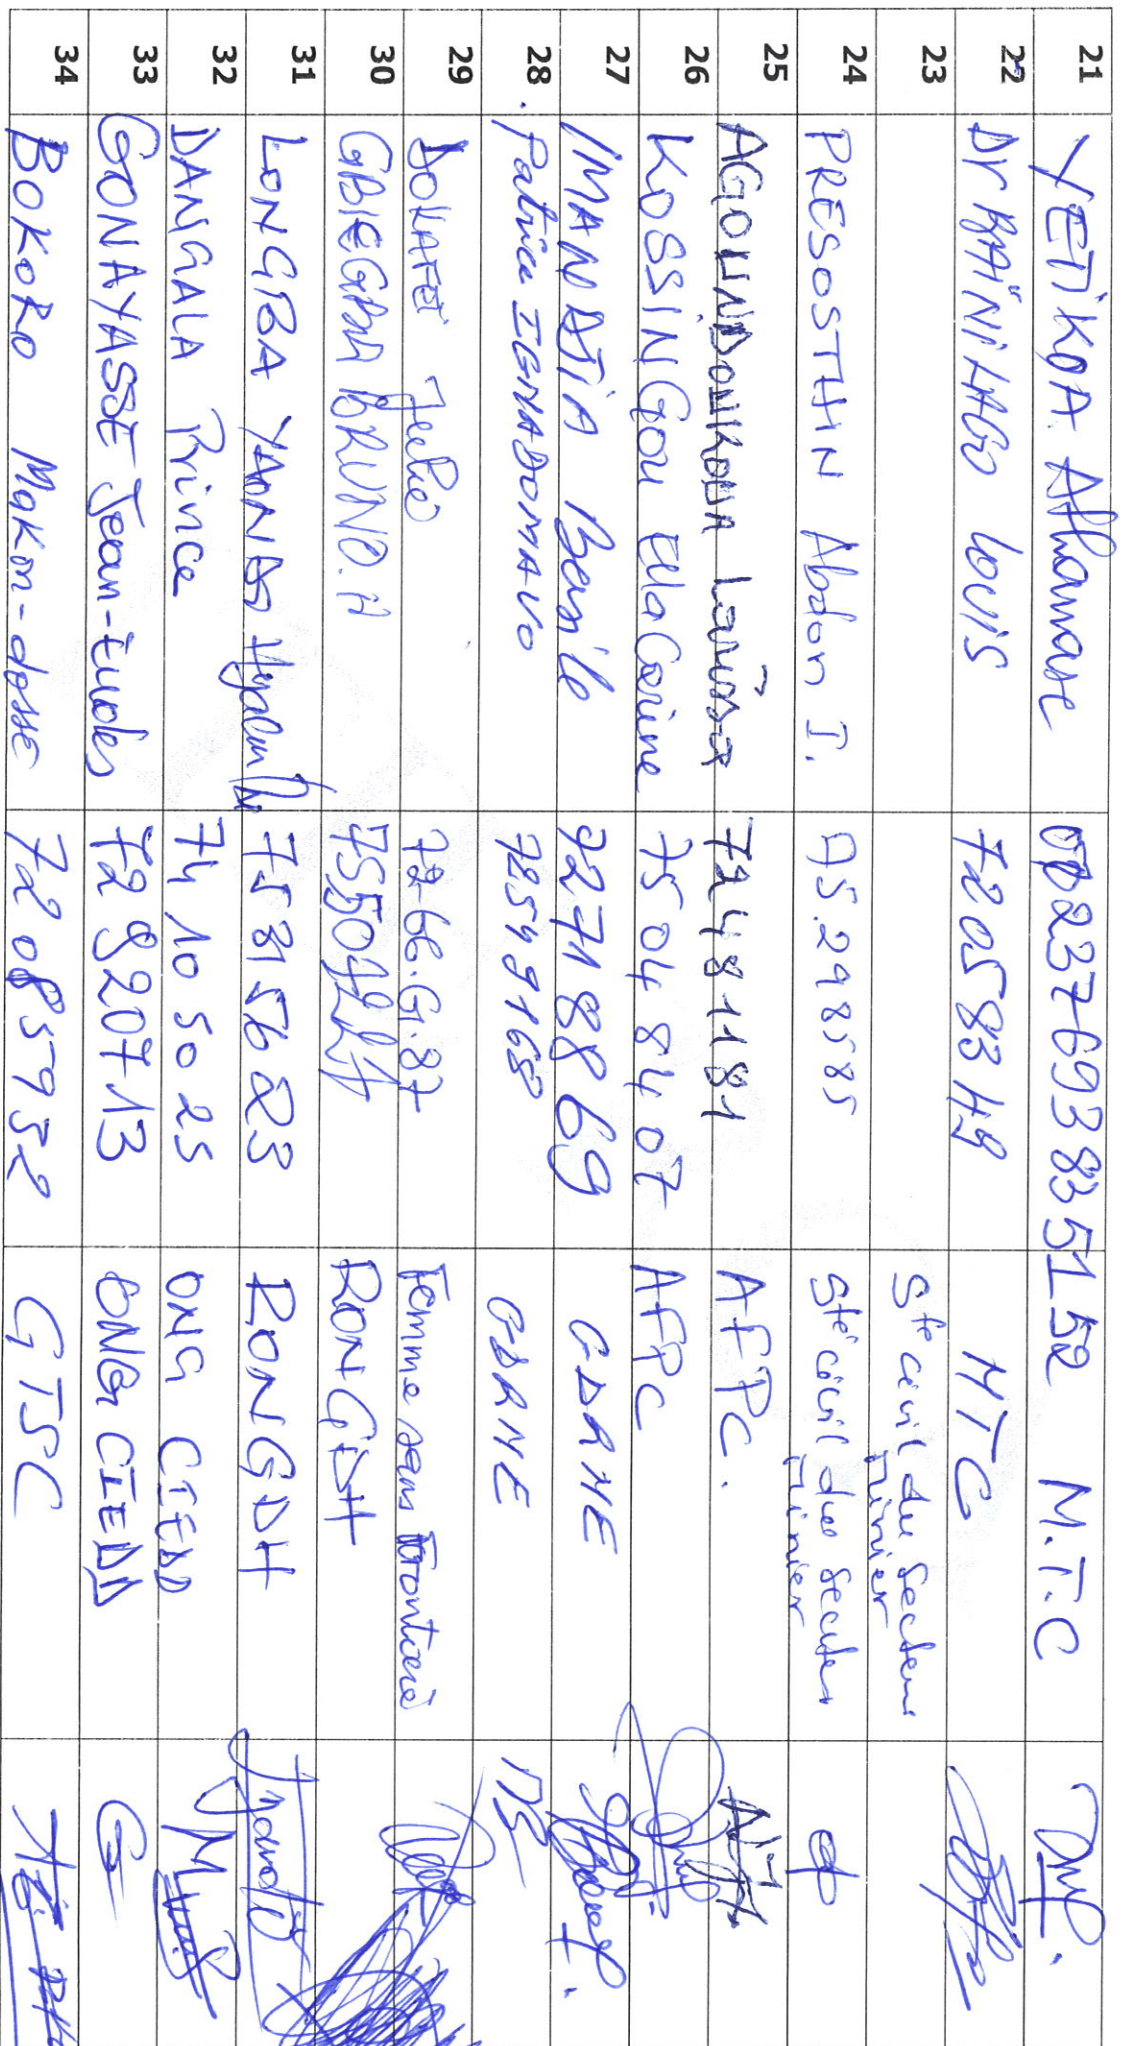 21 YETIKOA Athanase 00237693835152 M.T.C
22 Dr BAÏNILAGO Louis 72058349 MTC
23 Sté civil du Secteur minier
24 PRESOSTHIN Abdon I. 75.298585 Sté civil du Secteur minier
25 AGOUNDOUKOUA Larissa 72481181 AFPC.
26 KOSSINGOU Ella Corine 75 04 84 07 AFPC
27 IMANDJIA Basile 72718869 CDRNE
28 Patrice IGNADOMAVO 72549168 CDRNE
29 72.66.61.87 Femme sans Frontière
30 GBIEGBA BRUNO.H RONGDH
31 LONGBA 75815623 RONGDH
32 DANGALA Prince 74 10 50 25 ONG CIEDD
33 GONAYASSE Jean-Eudes 72 920713 ONG CIEDD
34 BOKORO Makon-dosse 72085932 GTSC